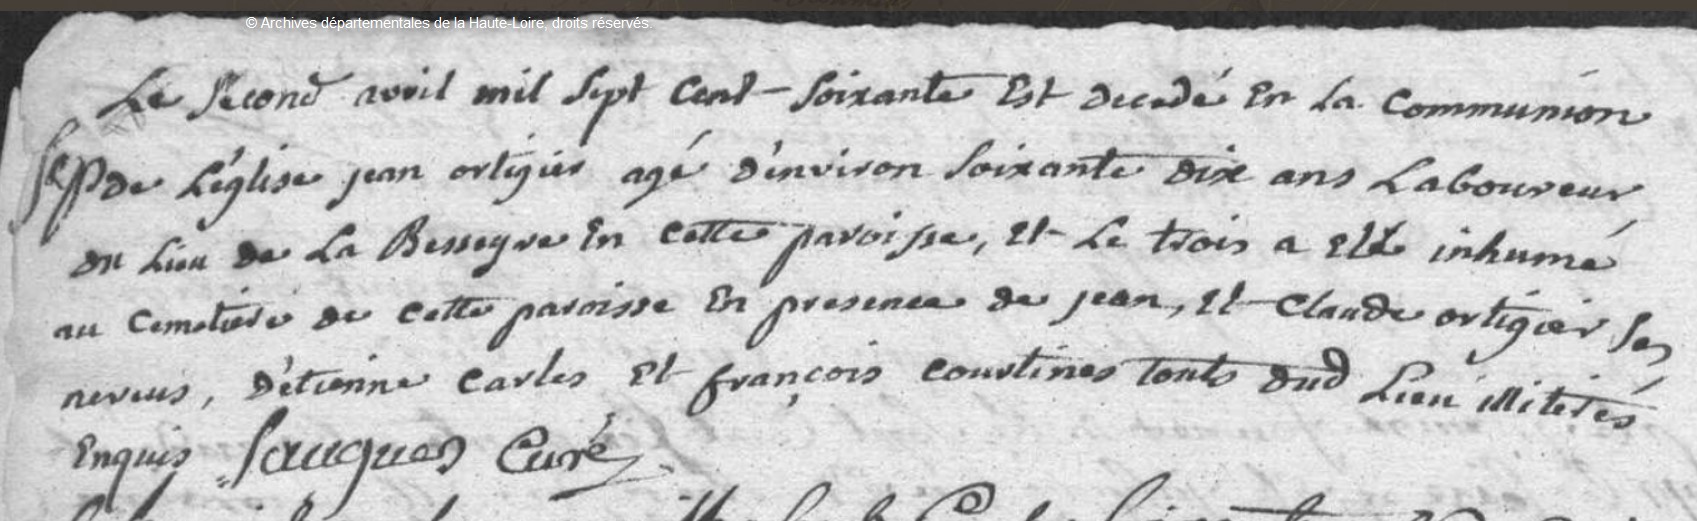 © Archives départementales de la Haute-Loire, droits réservés.
Le second avril mil sept cent-soixante est decedé en la communion
sep de L'église jean ortigier agé d'environ soixante dix ans Laboureur
du Lieu de La Besseyre en cette paroisse, et Le trois a eté inhumé
au cemetiere de cette paroisse en presence de jean, et Claude ortigier ses
neveus, d'etienne carles et françois courtines touts dud Lieu illiterés
enquis Sauques Curé